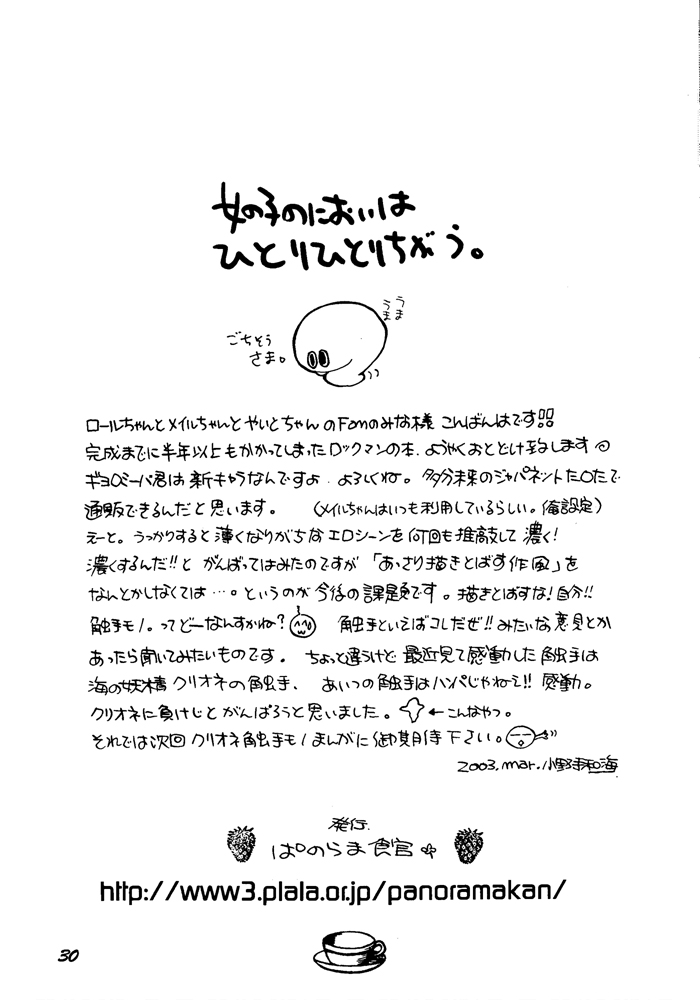 女の子のにおいは
ひとりひとりちがう。
うま
うま
ごちそう
さま。
ロールちゃんとメイルちゃんとやいとちゃんのFanのみな様 こんばんはです!!
完成までに半年以上もかかってしまったロックマンの本、ようやくおとどけ致します
ギョロビーバ君は新キャラなんですよ よろしくね。多分未来のジャパネットた〇たで
通販できるんだと思います。 (メイルちゃんはいつも利用しているらしい。俺設定)
えーと。うっかりすると薄くなりがちなエロシーンを何回も推敲して濃く!
濃くするんだ!!と がんばってはみたのですが 「あっさり描きとばす作風」を
なんとかしなくては…。というのが今後の課題です。描きとばすな!自分!!
触手モノ。ってどーなんすかね? 触手といえばコレだぜ!!みたいな意見とか
あったら聞いてみたいものです。ちょっと違うけど最近見て感動した触手は
海の妖精クリオネの触手、あいつの触手はハンパじゃねェ!!感動。
クリオネに負けじとがんばろうと思いました。←こんなやつ。
それでは次回クリオネ触手モノまんがに御期待下さい。
2003.mar.小野寺和海
発行.
ぱのらま食官
http://www3.plala.or.jp/panoramakan/
30